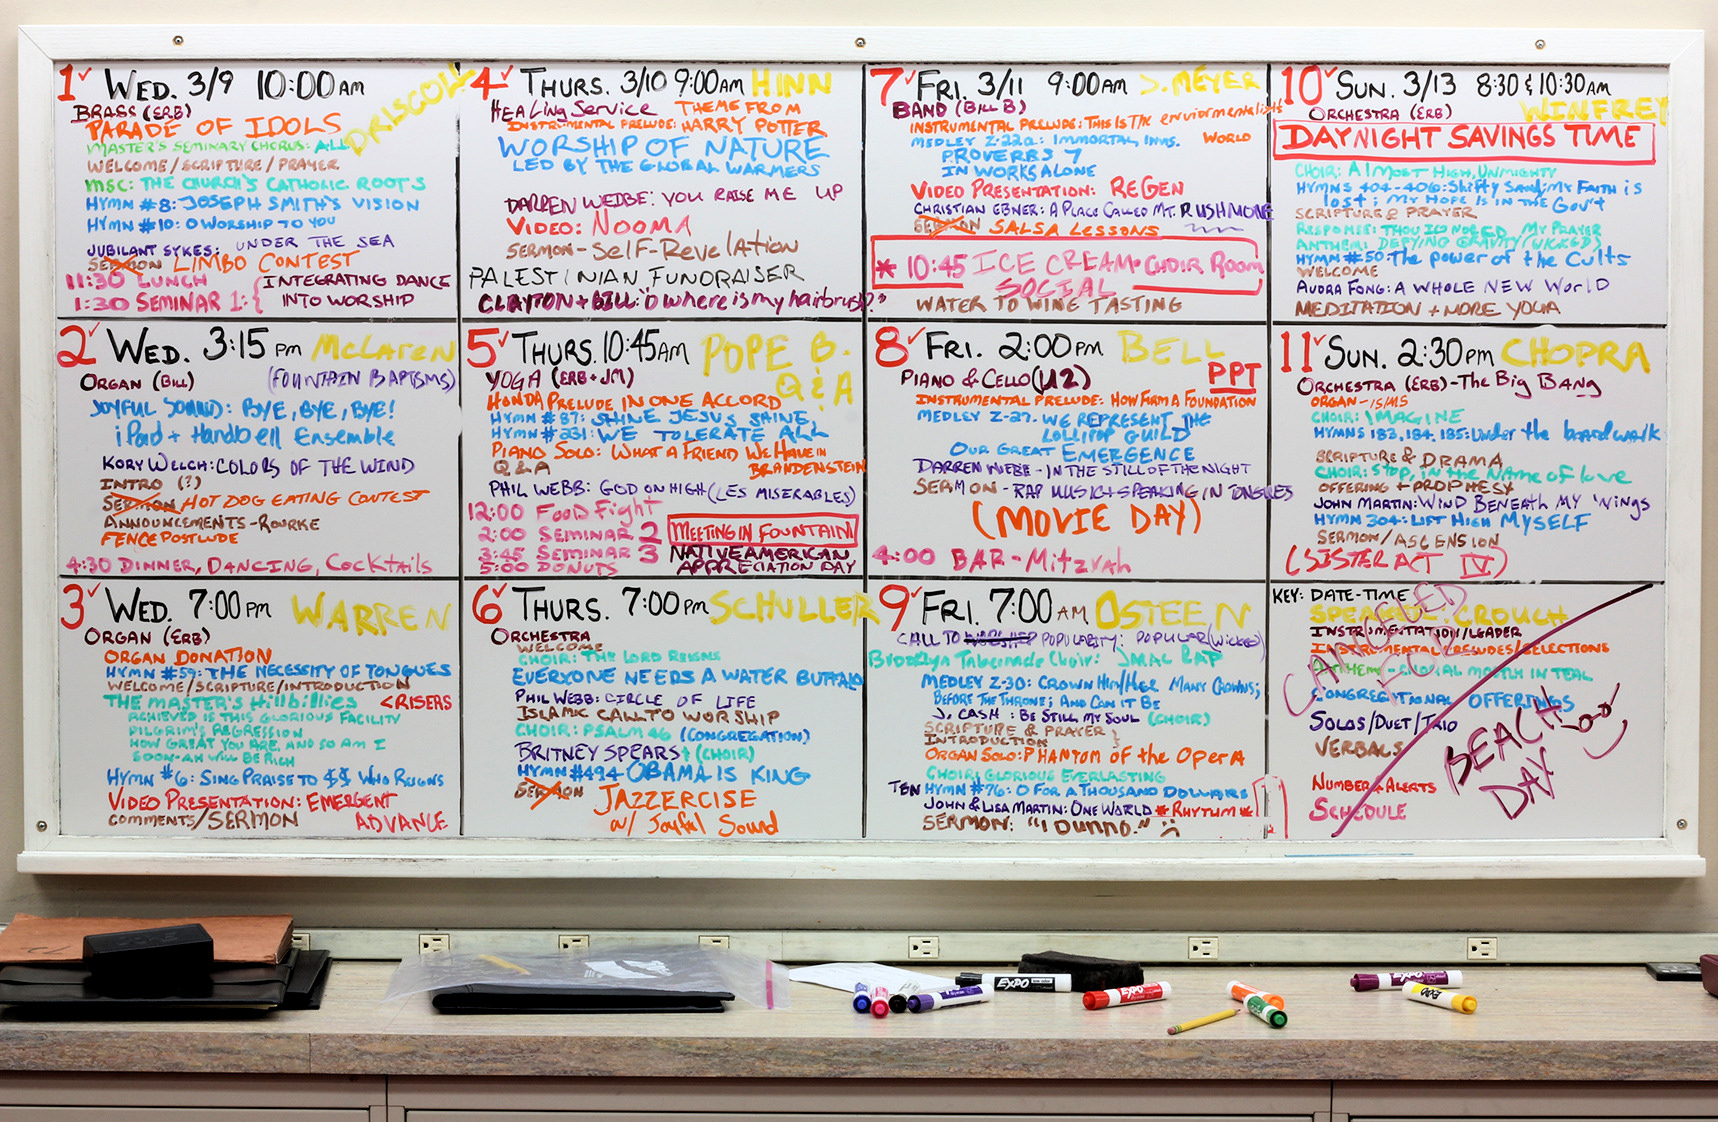 1✓ WED. 3/9 10:00 AM
DRISCOLL
BRASS (ERB)
PARADE OF IDOLS
MASTER'S SEMINARY CHORUS: ALL
WELCOME/SCRIPTURE/PRAYER
MSC: THE CHURCH'S CATHOLIC ROOTS
HYMN #8: JOSEPH SMITH'S VISION
HYMN #10: O WORSHIP TO YOU
JUBILANT SYKES: UNDER THE SEA
SERMON LIMBO CONTEST
11:30 LUNCH
1:30 SEMINAR 1: { INTEGRATING DANCE
INTO WORSHIP
2✓ WED. 3:15 PM McLAREN
ORGAN (BILL) (FOUNTAIN BAPTISMS)
JOYFUL SOUND: BYE, BYE, BYE!
iPad + Handbell Ensemble
KORY WELCH: COLORS OF THE WIND
INTRO (?)
SERMON HOT DOG EATING CONTEST
ANNOUNCEMENTS - ROURKE
FENCE POSTLUDE
4:30 DINNER, DANCING, COCKTAILS
3✓ WED. 7:00 PM WARREN
ORGAN (ERB)
ORGAN DONATION
HYMN #59: THE NECESSITY OF TONGUES
WELCOME/SCRIPTURE/INTRODUCTION
THE MASTER'S HILLBILLIES <RISERS
ACHIEVED IS THIS GLORIOUS FACILITY
PILGRIM'S REGRESSION
HOW GREAT YOU ARE, AND SO AM I
SOON-AH WILL BE RICH
HYMN #6: SING PRAISE TO $$ WHO REIGNS
VIDEO PRESENTATION: EMERGENT
ADVANCE
COMMENTS/SERMON
4✓ THURS. 3/10 9:00 AM HINN
HEALING SERVICE THEME FROM
INSTRUMENTAL PRELUDE: HARRY POTTER
WORSHIP OF NATURE
LED BY THE GLOBAL WARMERS
DARREN WEBBE: YOU RAISE ME UP
VIDEO: NOOMA
SERMON - SELF-REVELATION
PALESTINIAN FUNDRAISER
CLAYTON + BILL: "O where is my hairbrush?"
5✓ THURS. 10:45 AM POPE B.
Q & A
YOGA (ERB + JM)
HONDA PRELUDE IN ONE ACCORD
HYMN #87: SHINE JESUS SHINE
HYMN #231: WE TOLERATE ALL
PIANO SOLO: WHAT A FRIEND WE HAVE IN
BRANDENSTEIN
Q & A
PHIL WEBB: GOD ON HIGH (LES MISERABLES)
12:00 FOOD FIGHT
2:00 SEMINAR 2 MEETING IN FOUNTAIN
3:45 SEMINAR 3 NATIVE AMERICAN
5:00 DONUTS APPRECIATION DAY
6✓ THURS. 7:00 PM SCHULLER
ORCHESTRA
WELCOME
CHOIR: THE LORD REIGNS
EVERYONE NEEDS A WATER BUFFALO
PHIL WEBB: CIRCLE OF LIFE
ISLAMIC CALL TO WORSHIP
CHOIR: PSALM 46 (CONGREGATION)
BRITNEY SPEARS + (CHOIR)
HYMN #494 OBAMA IS KING
SERMON JAZZERCISE
w/ Joyful Sound
7✓ FRI. 3/11 9:00 AM J. MEYER
BAND (BILL B)
INSTRUMENTAL PRELUDE: THIS IS THE environmentalist
WORLD
MEDLEY Z-22a: IMMORTAL, INVIS.
PROVERBS 7
IN WORKS ALONE
VIDEO PRESENTATION: REGEN
CHRISTIAN EBNER: A PLACE CALLED MT. RUSHMORE
SERMON SALSA LESSONS
* 10:45 ICE CREAM CHOIR ROOM
SOCIAL
WATER TO WINE TASTING
8✓ FRI. 2:00 PM BELL
PPT
PIANO & CELLO (U2)
INSTRUMENTAL PRELUDE: HOW FIRM A FOUNDATION
MEDLEY Z-27. WE REPRESENT THE
LOLLIPOP GUILD
OUR GREAT EMERGENCE
DARREN WEBB - IN THE STILL OF THE NIGHT
SERMON - RAP MUSIC + SPEAKING IN TONGUES
(MOVIE DAY)
4:00 BAR-MITZVAH
9✓ FRI. 7:00 AM OSTEEN
CALL TO WORSHIP POPULARITY: POPULAR (WICKED)
Brooklyn Tabernacle Choir: JMAL RAP
MEDLEY Z-30: CROWN HIM/HER MANY CROWNS;
BEFORE THE THRONE; AND CAN IT BE
J. CASH: BE STILL MY SOUL (CHOIR)
SCRIPTURE & PRAYER }
INTRODUCTION
ORGAN SOLO: PHANTOM OF THE OPERA
CHOIR: GLORIOUS EVERLASTING
TEN HYMN #76: O FOR A THOUSAND DOLLARS
JOHN & LISA MARTIN: ONE WORLD * RHYTHM *
SERMON: "I DUNNO."
10✓ SUN. 3/13 8:30 & 10:30 AM
WINFREY
ORCHESTRA (ERB)
DAYNIGHT SAVINGS TIME
CHOIR: ALMOST HIGH, UNMIGHTY
HYMNS 404-406: Shifty Sand; My FAITH is
lost; MY HOPE IS IN THE GOV'T
SCRIPTURE & PRAYER
RESPONSE: THOU IGNORED MY PRAYER
ANTHEM: DEFYING GRAVITY (WICKED)
HYMN #50: The power of the Cults
WELCOME
AUDRA FONG: A WHOLE NEW WORLD
MEDITATION + MORE YOGA
11✓ SUN. 2:30 PM CHOPRA
ORCHESTRA (ERB) - THE BIG BANG
ORGAN - ISMS
CHOIR: IMAGINE
HYMNS 183, 184, 185: Under the boardwalk
SCRIPTURE & DRAMA
CHOIR: STOP, in the NAME of love
OFFERING + PROPHESY
JOHN MARTIN: WIND BENEATH MY WINGS
HYMN 304: LIFT HIGH MYSELF
SERMON/ASCENSION
(SISTER ACT IV)
KEY: DATE-TIME
SPEAKER CROUCH
INSTRUMENTATION/LEADER
INSTRUMENTAL PRELUDES/SELECTIONS
ANTHEM - CHORAL MOSTLY IN TEAL
CONGREGATIONAL OFFERINGS
SOLOS/DUET/TRIO
VERBALS
NUMBER + ALERTS
SCHEDULE
CANCELED
FOR
BEACH
DAY
EXPO
EXPO
EXPO
EXPO